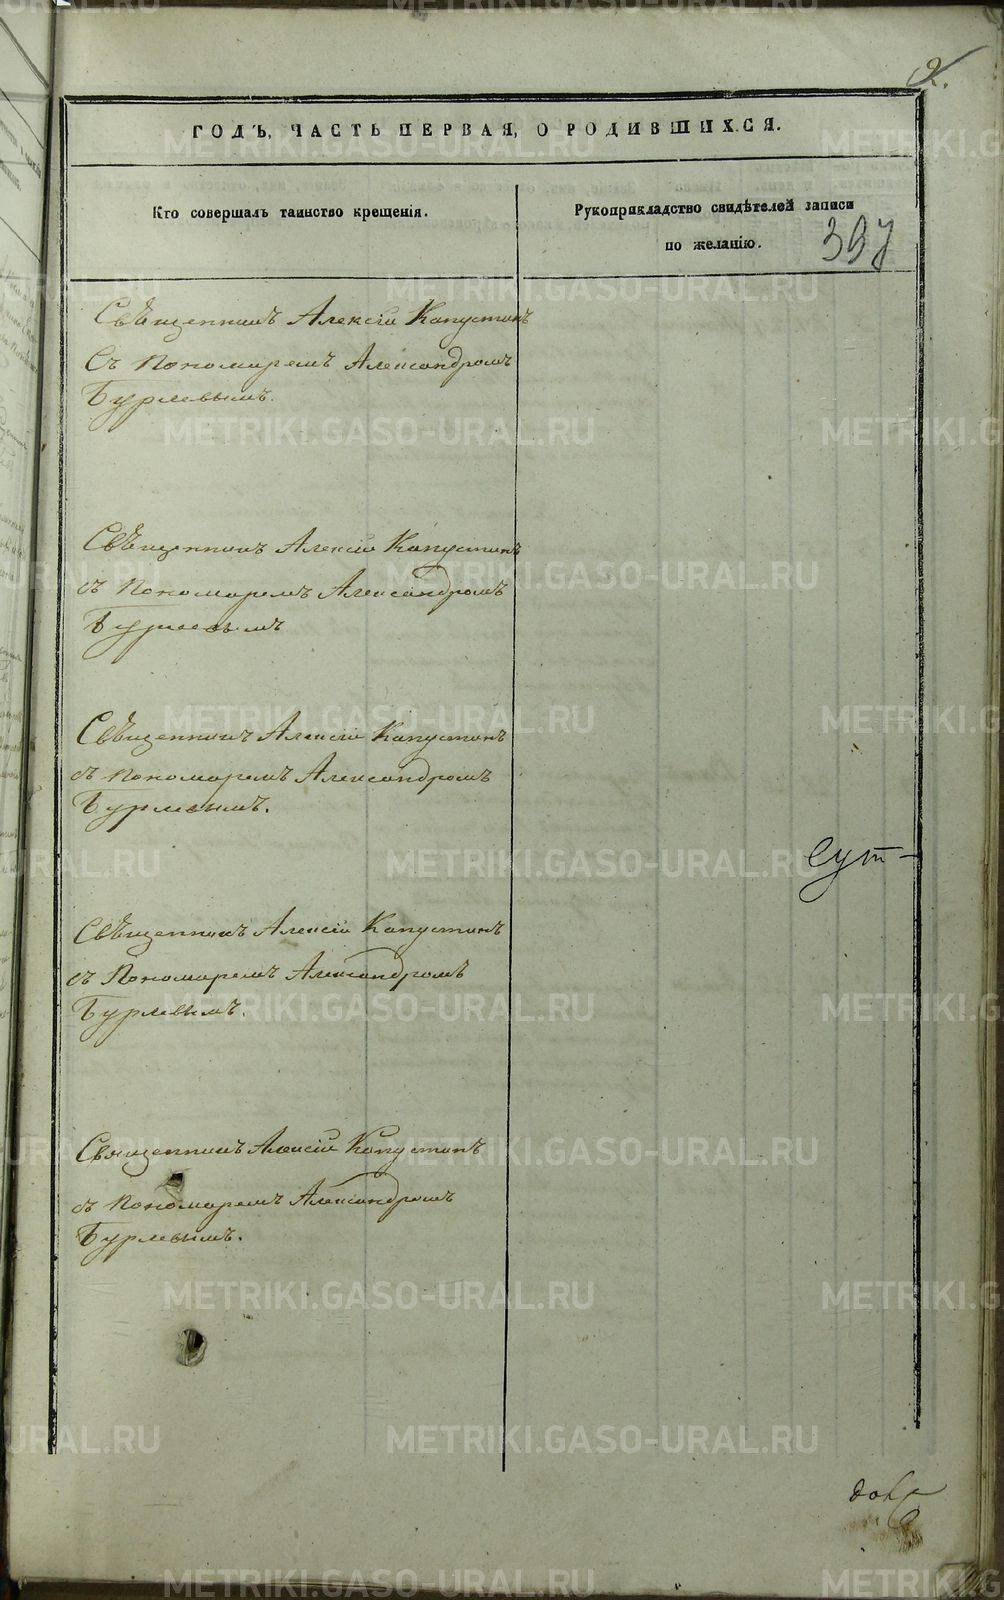 2.
ГОДЪ, ЧАСТЬ ПЕРВАЯ, О РОДИВШИХСЯ.
Кто совершалъ таинство крещенія.
Рукоприкладство свидѣтелей записи
по желанію.
397
Свѣщенникъ Алексій Капустинъ
Съ Пономаремъ Александромъ
Бурлевымъ.
Свѣщенникъ Алексій Капустинъ
съ Пономаремъ Александромъ
Бурлевымъ
Свѣщенникъ Алексій Капустинъ
съ Пономаремъ Александромъ
Бурлевымъ.
сут-
Свѣщенникъ Алексій Капустинъ
съ Пономаремъ Александромъ
Бурлевымъ.
Священникъ Алексій Капустинъ
съ Пономаремъ Александромъ
Бурлевымъ.
METRIKI.GASO-URAL.RU